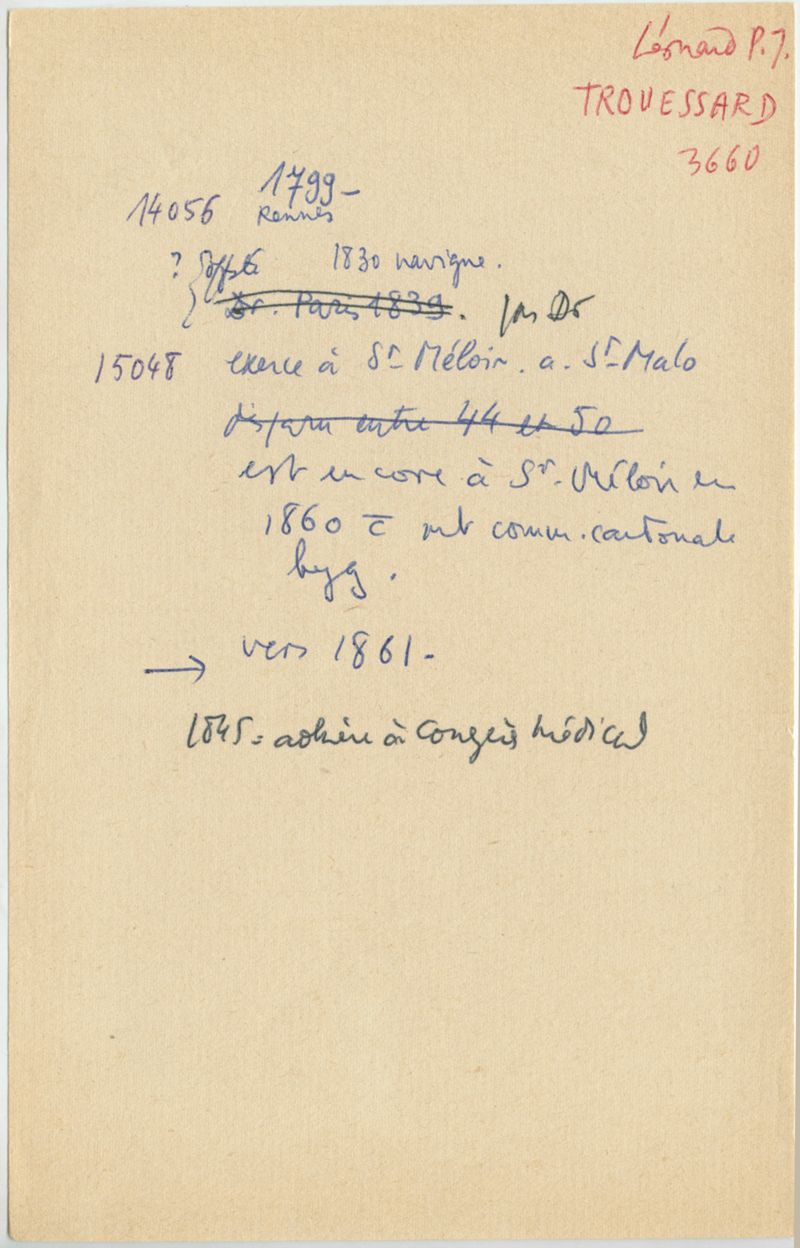 Léonard P.J.
TROUESSARD
3660
1799-
14056 Rennes
? 1830 navigue.
Dr. Paris 1839. pas Dr
15048 exerce à St Méloir. a. St Malo
disparu entre 44 et 50
est encore à St. Méloir en
1860 c̄ mb comm. cantonale
hyg.
→ vers 1861-
1845 = adhère à Congrès médical